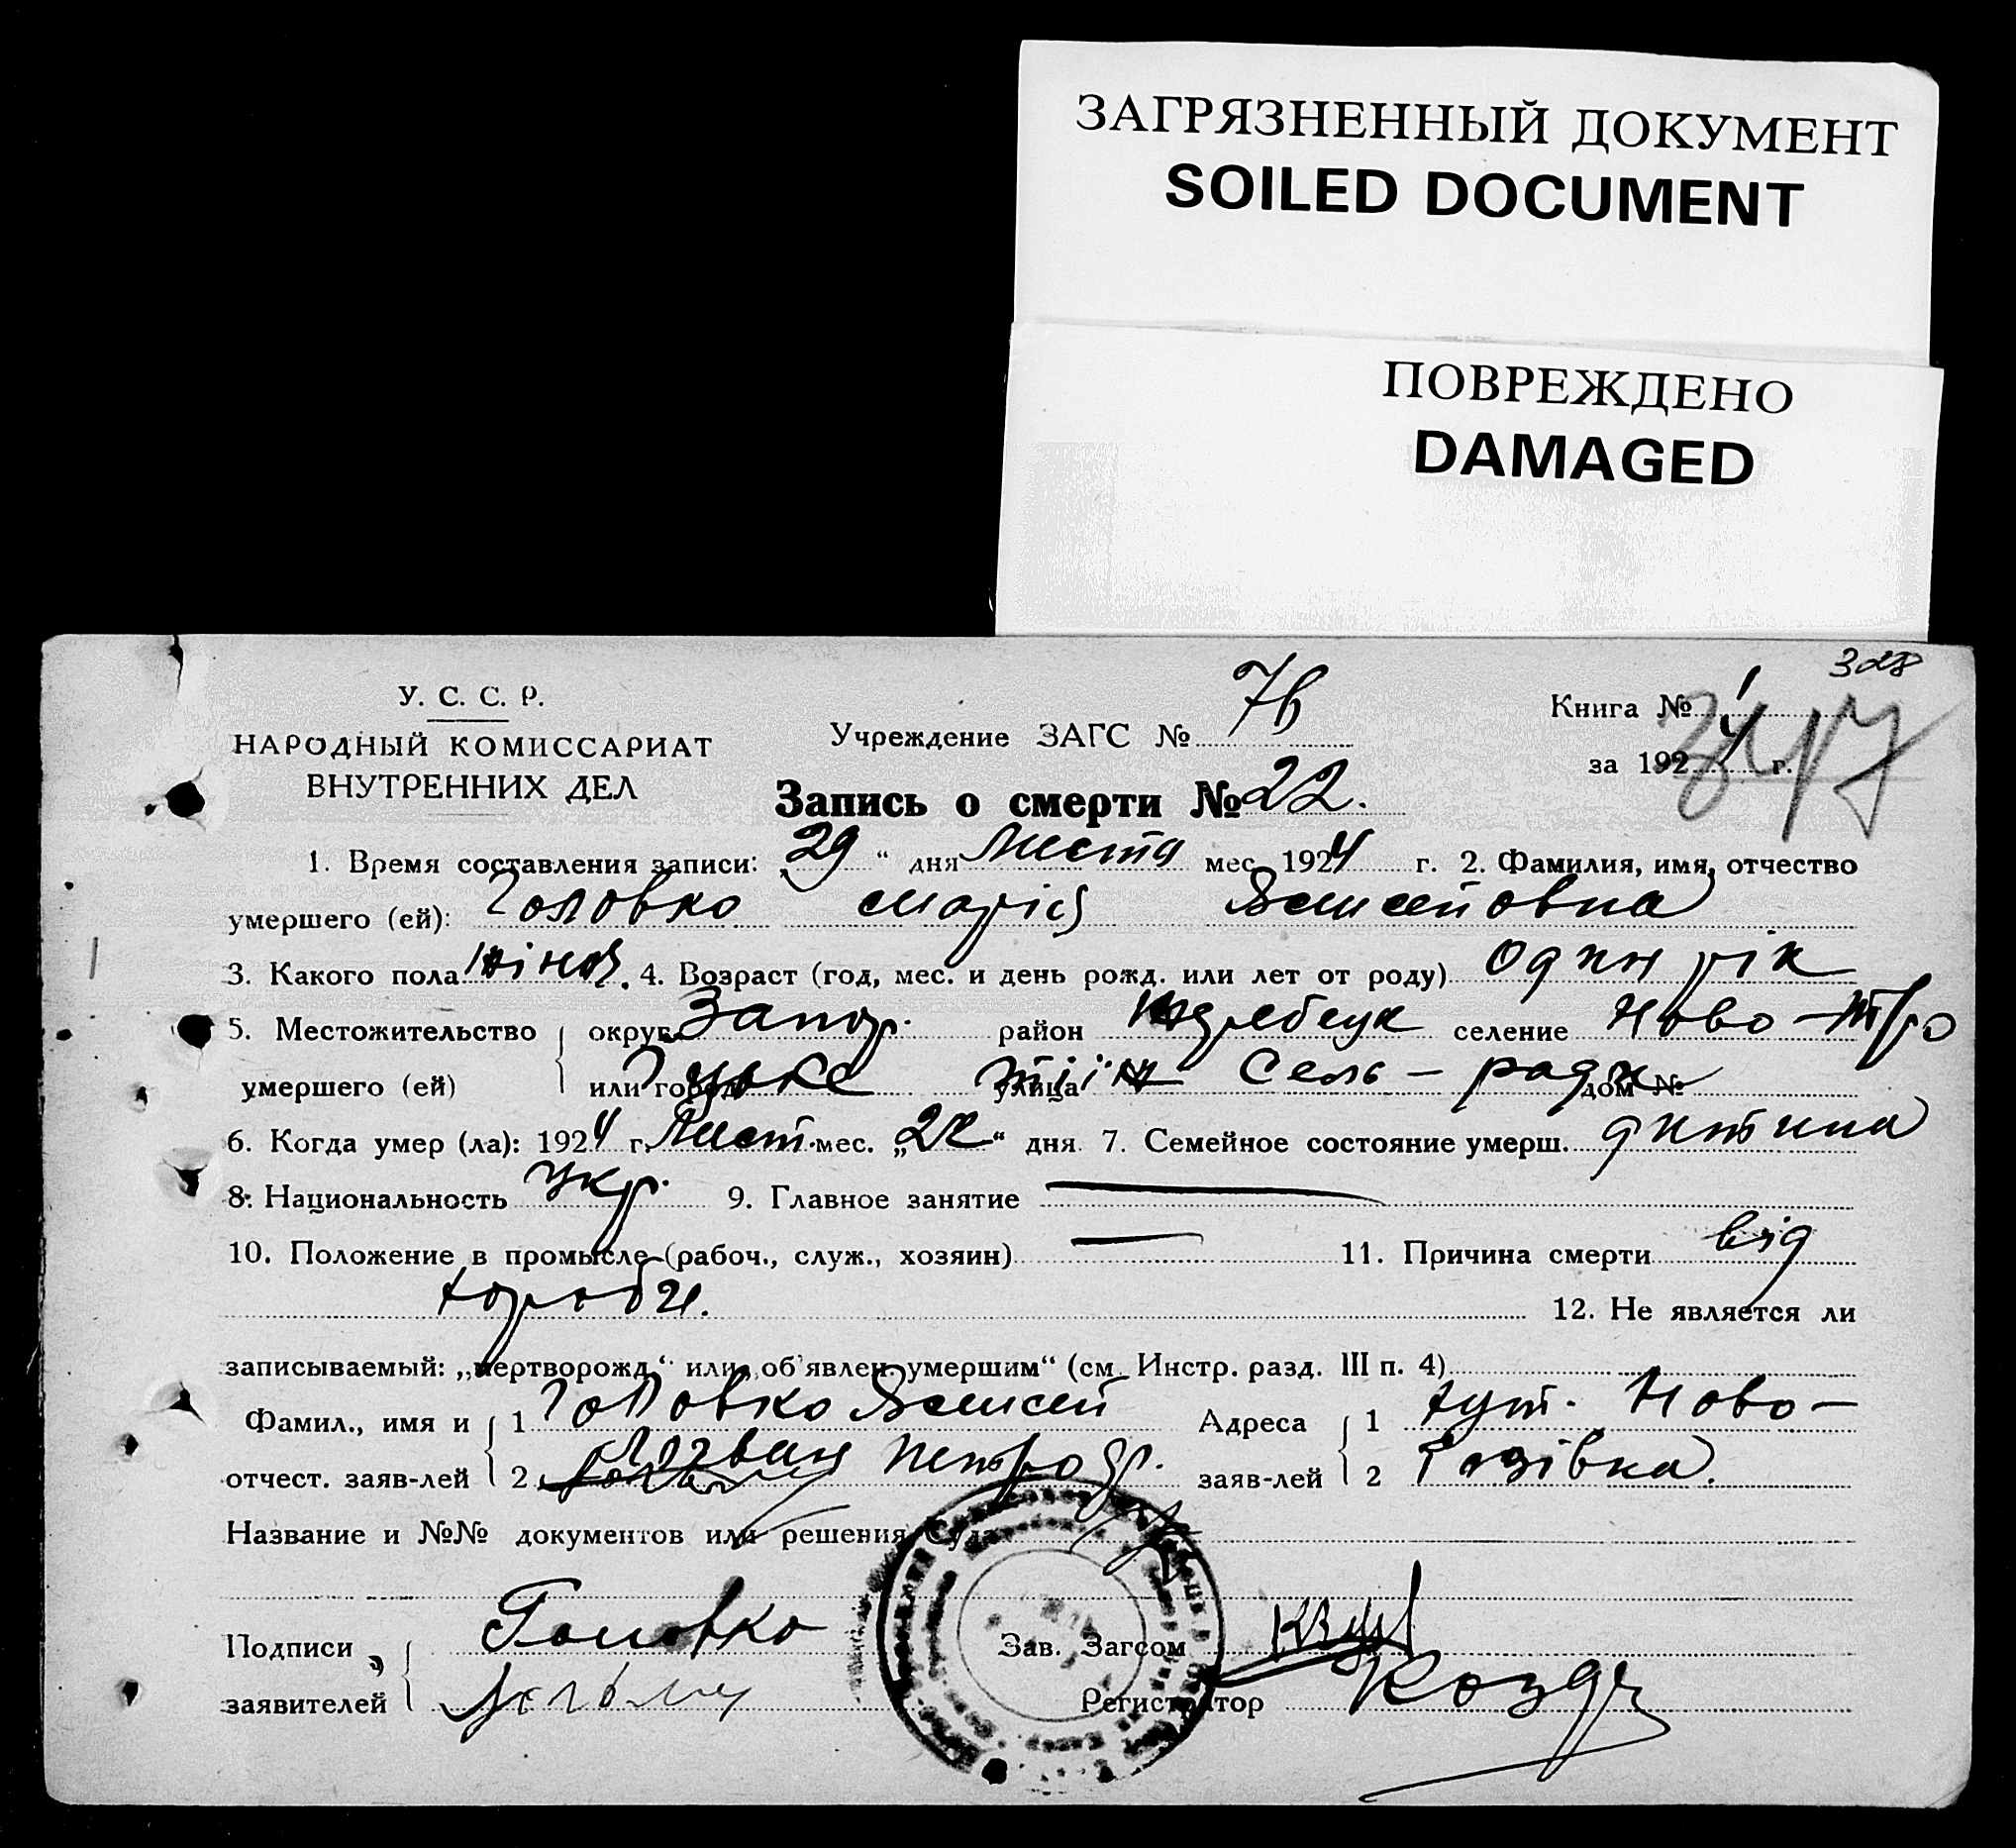 ЗАГРЯЗНЕННЫЙ ДОКУМЕНТ
SOILED DOCUMENT
ПОВРЕЖДЕНО
DAMAGED
328
У. С. С. Р.
НАРОДНЫЙ КОМИССАРИАТ
ВНУТРЕННИХ ДЕЛ
Учреждение ЗАГС №
Книга № 1
за 1924 г.
Запись о смерти № 22.
1. Время составления записи: „29“ дня Листа мес. 1924 г. 2. Фамилия, имя, отчество
умершего (ей): Головко Марія
3. Какого пола жіноч. 4. Возраст (год, мес. и день рожд. или лет от роду) один рік
5. Местожительство округ Запор. район селение Ново-
умершего (ей) или город улица Сель-ради дом №
6. Когда умер (ла): 1924 г. Лист. мес. „22“ дня. 7. Семейное состояние умерш. дитина
8. Национальность укр. 9. Главное занятие —
10. Положение в промысле (рабоч., служ., хозяин) — 11. Причина смерти від
хороби. 12. Не является ли
записываемый: „мертворожд.“ или „об'явлен. умершим“ (см. Инстр. разд. III п. 4)
Фамил., имя и 1 Головко Адреса 1 хут. Ново-
отчест. заяв-лей 2 Петро заяв-лей 2
Название и №№ документов или решения Суда
Подписи Головко Зав. Загсом
заявителей Регистратор